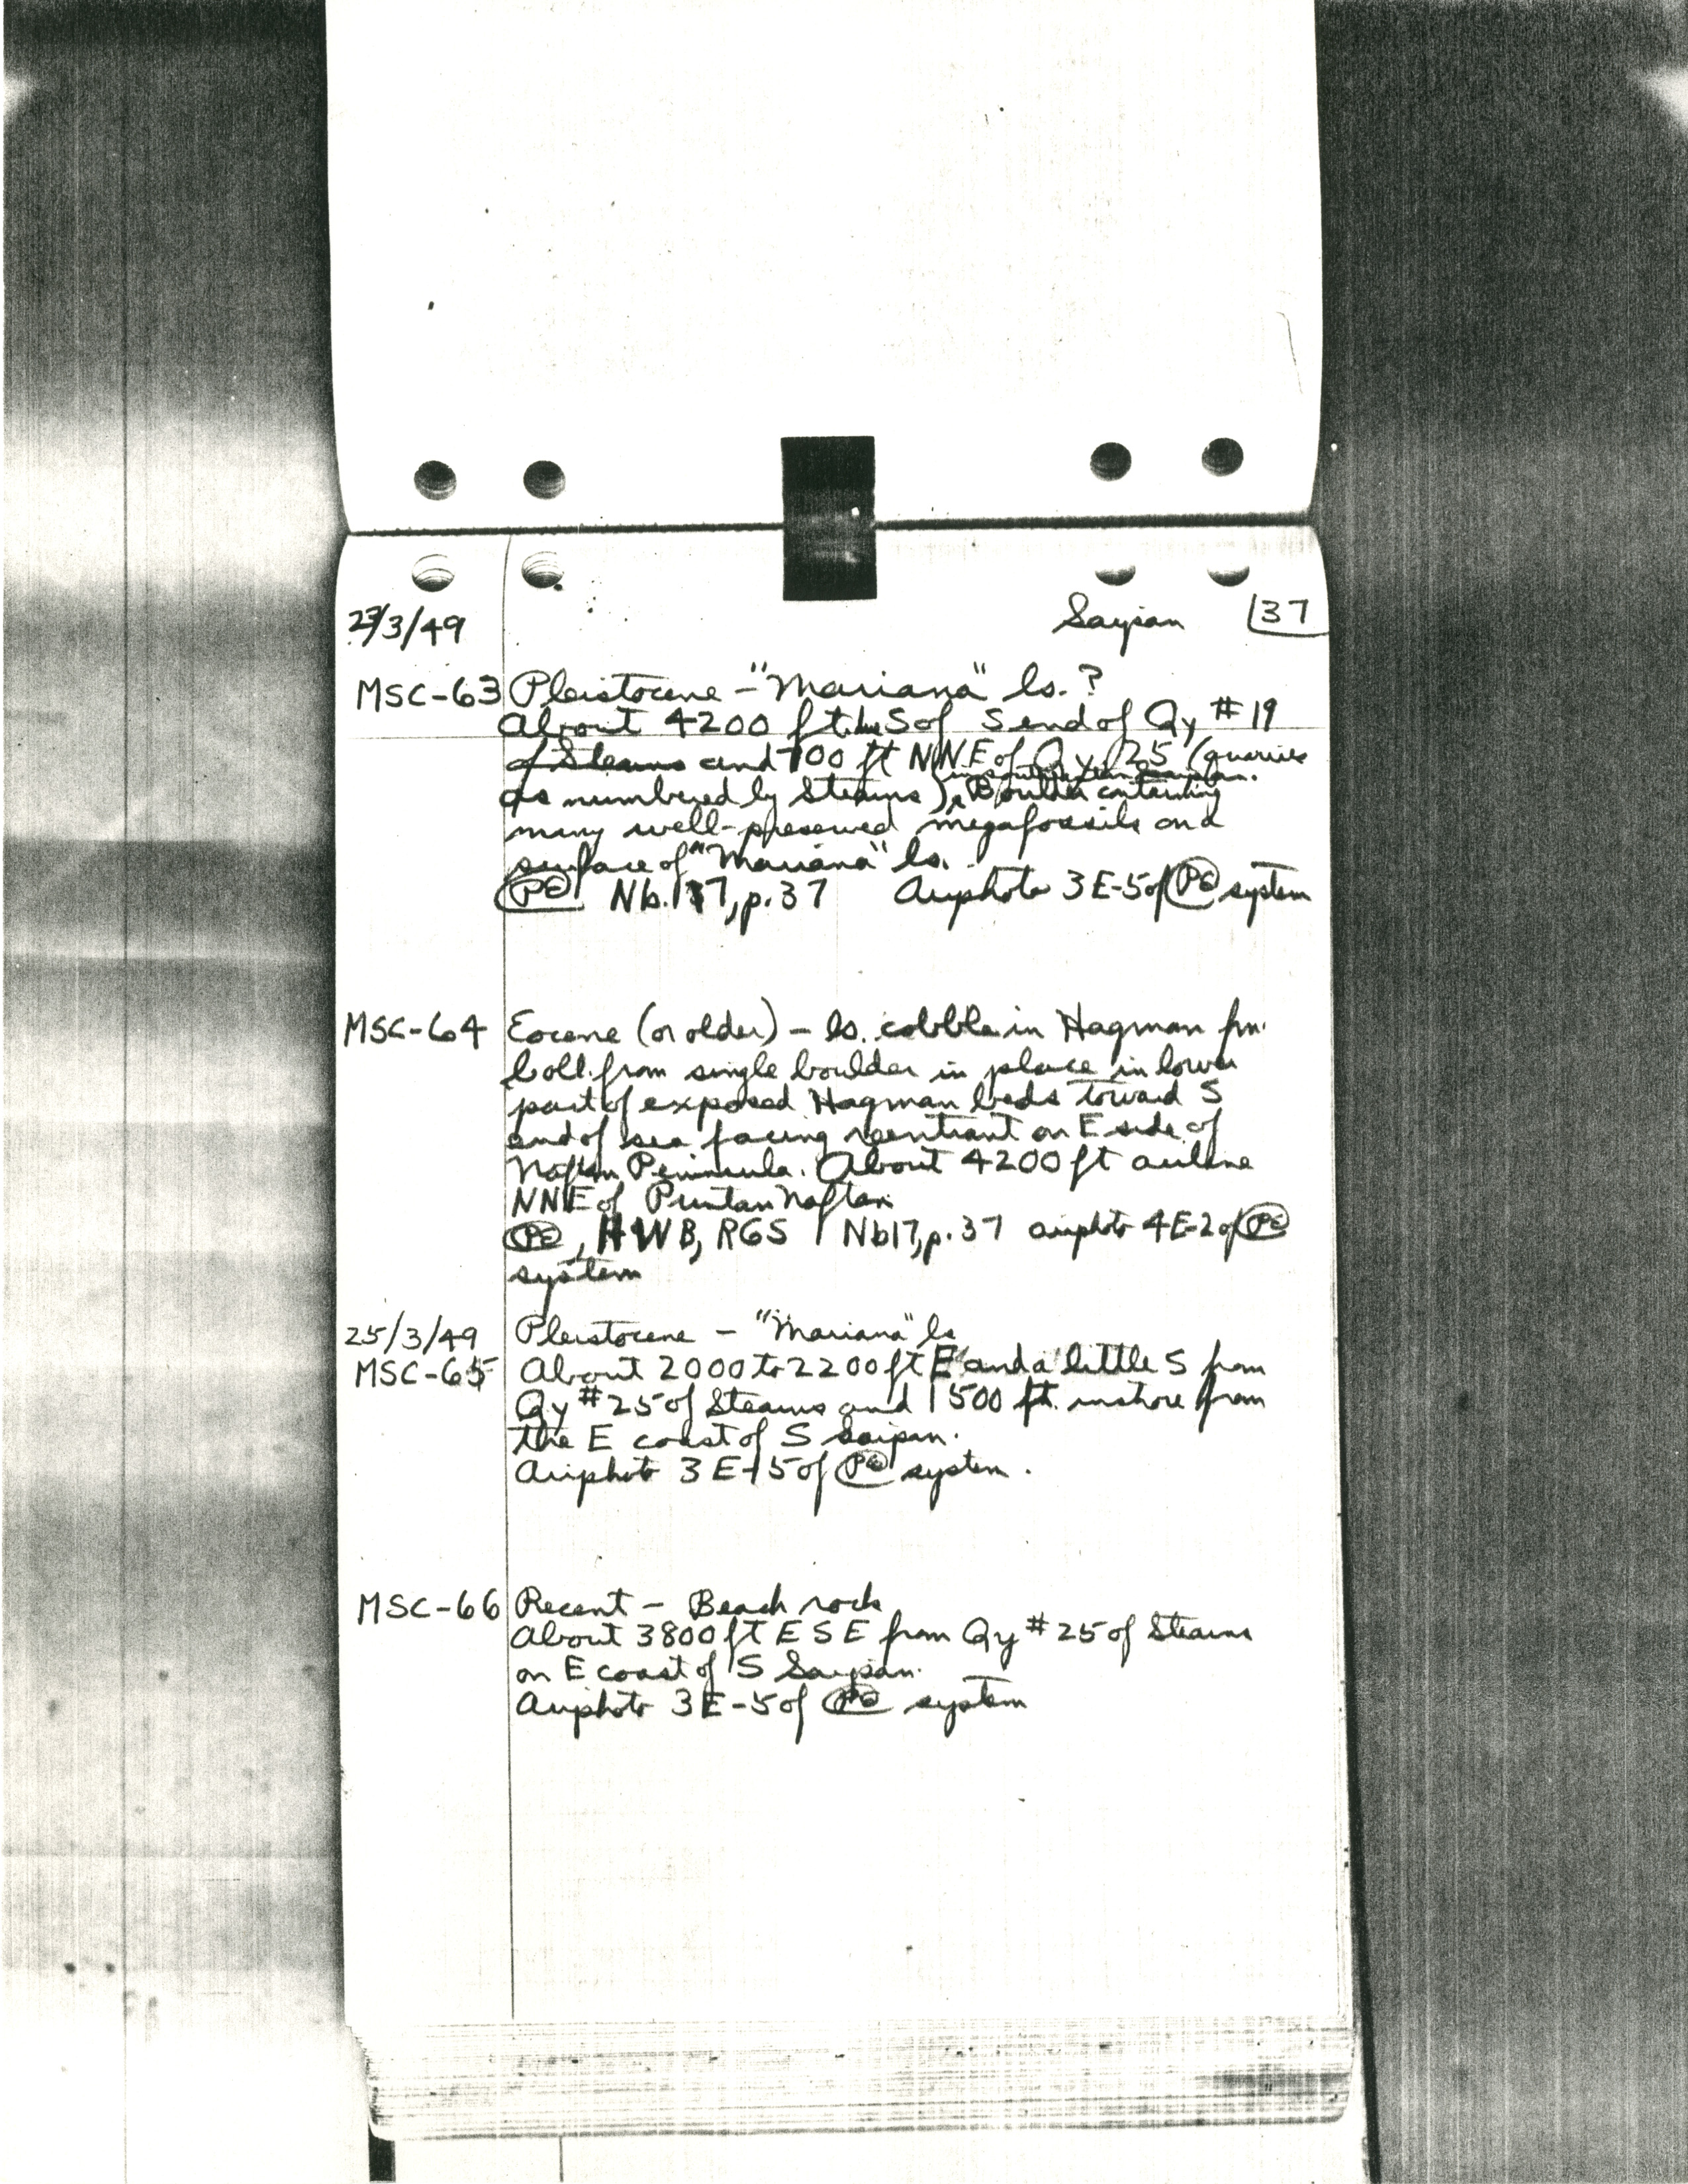 23/3/49 Saipan 37
MSC-63 Pleistocene - "Mariana" ls. ?
About 4200 ft S of S end of Qy #19
of Stearns and 700 ft NNE of Qy 25 (quarries
in southeastern Saipan.
as numbered by Stearns), Boulder containing
many well-preserved megafossils on a
surface of "Mariana" ls.
PE Nb. 17, p. 37 Airphoto 3E-5 of PE system
MSC-64 Eocene (or older) - ls. cobble in Hagman fm.
Coll. from single boulder in place in lower
part of exposed Hagman beds toward S
end of sea facing reentrant on E side of
Naftan Peninsula. About 4200 ft airline
NNE of Puntan Naftan
PE, HWB, RGS Nb17, p. 37 airphoto 4E-2 of PE
system
25/3/49 Pleistocene - "Mariana" ls
MSC-65 About 2000 to 2200 ft E and a little S from
Qy #25 of Stearns and 1500 ft. inshore from
the E coast of S Saipan.
Airphoto 3E-5 of PE system.
MSC-66 Recent - Beach rock
About 3800 ft ESE from Qy #25 of Stearns
on E coast of S Saipan.
Airphoto 3E-5 of PE system